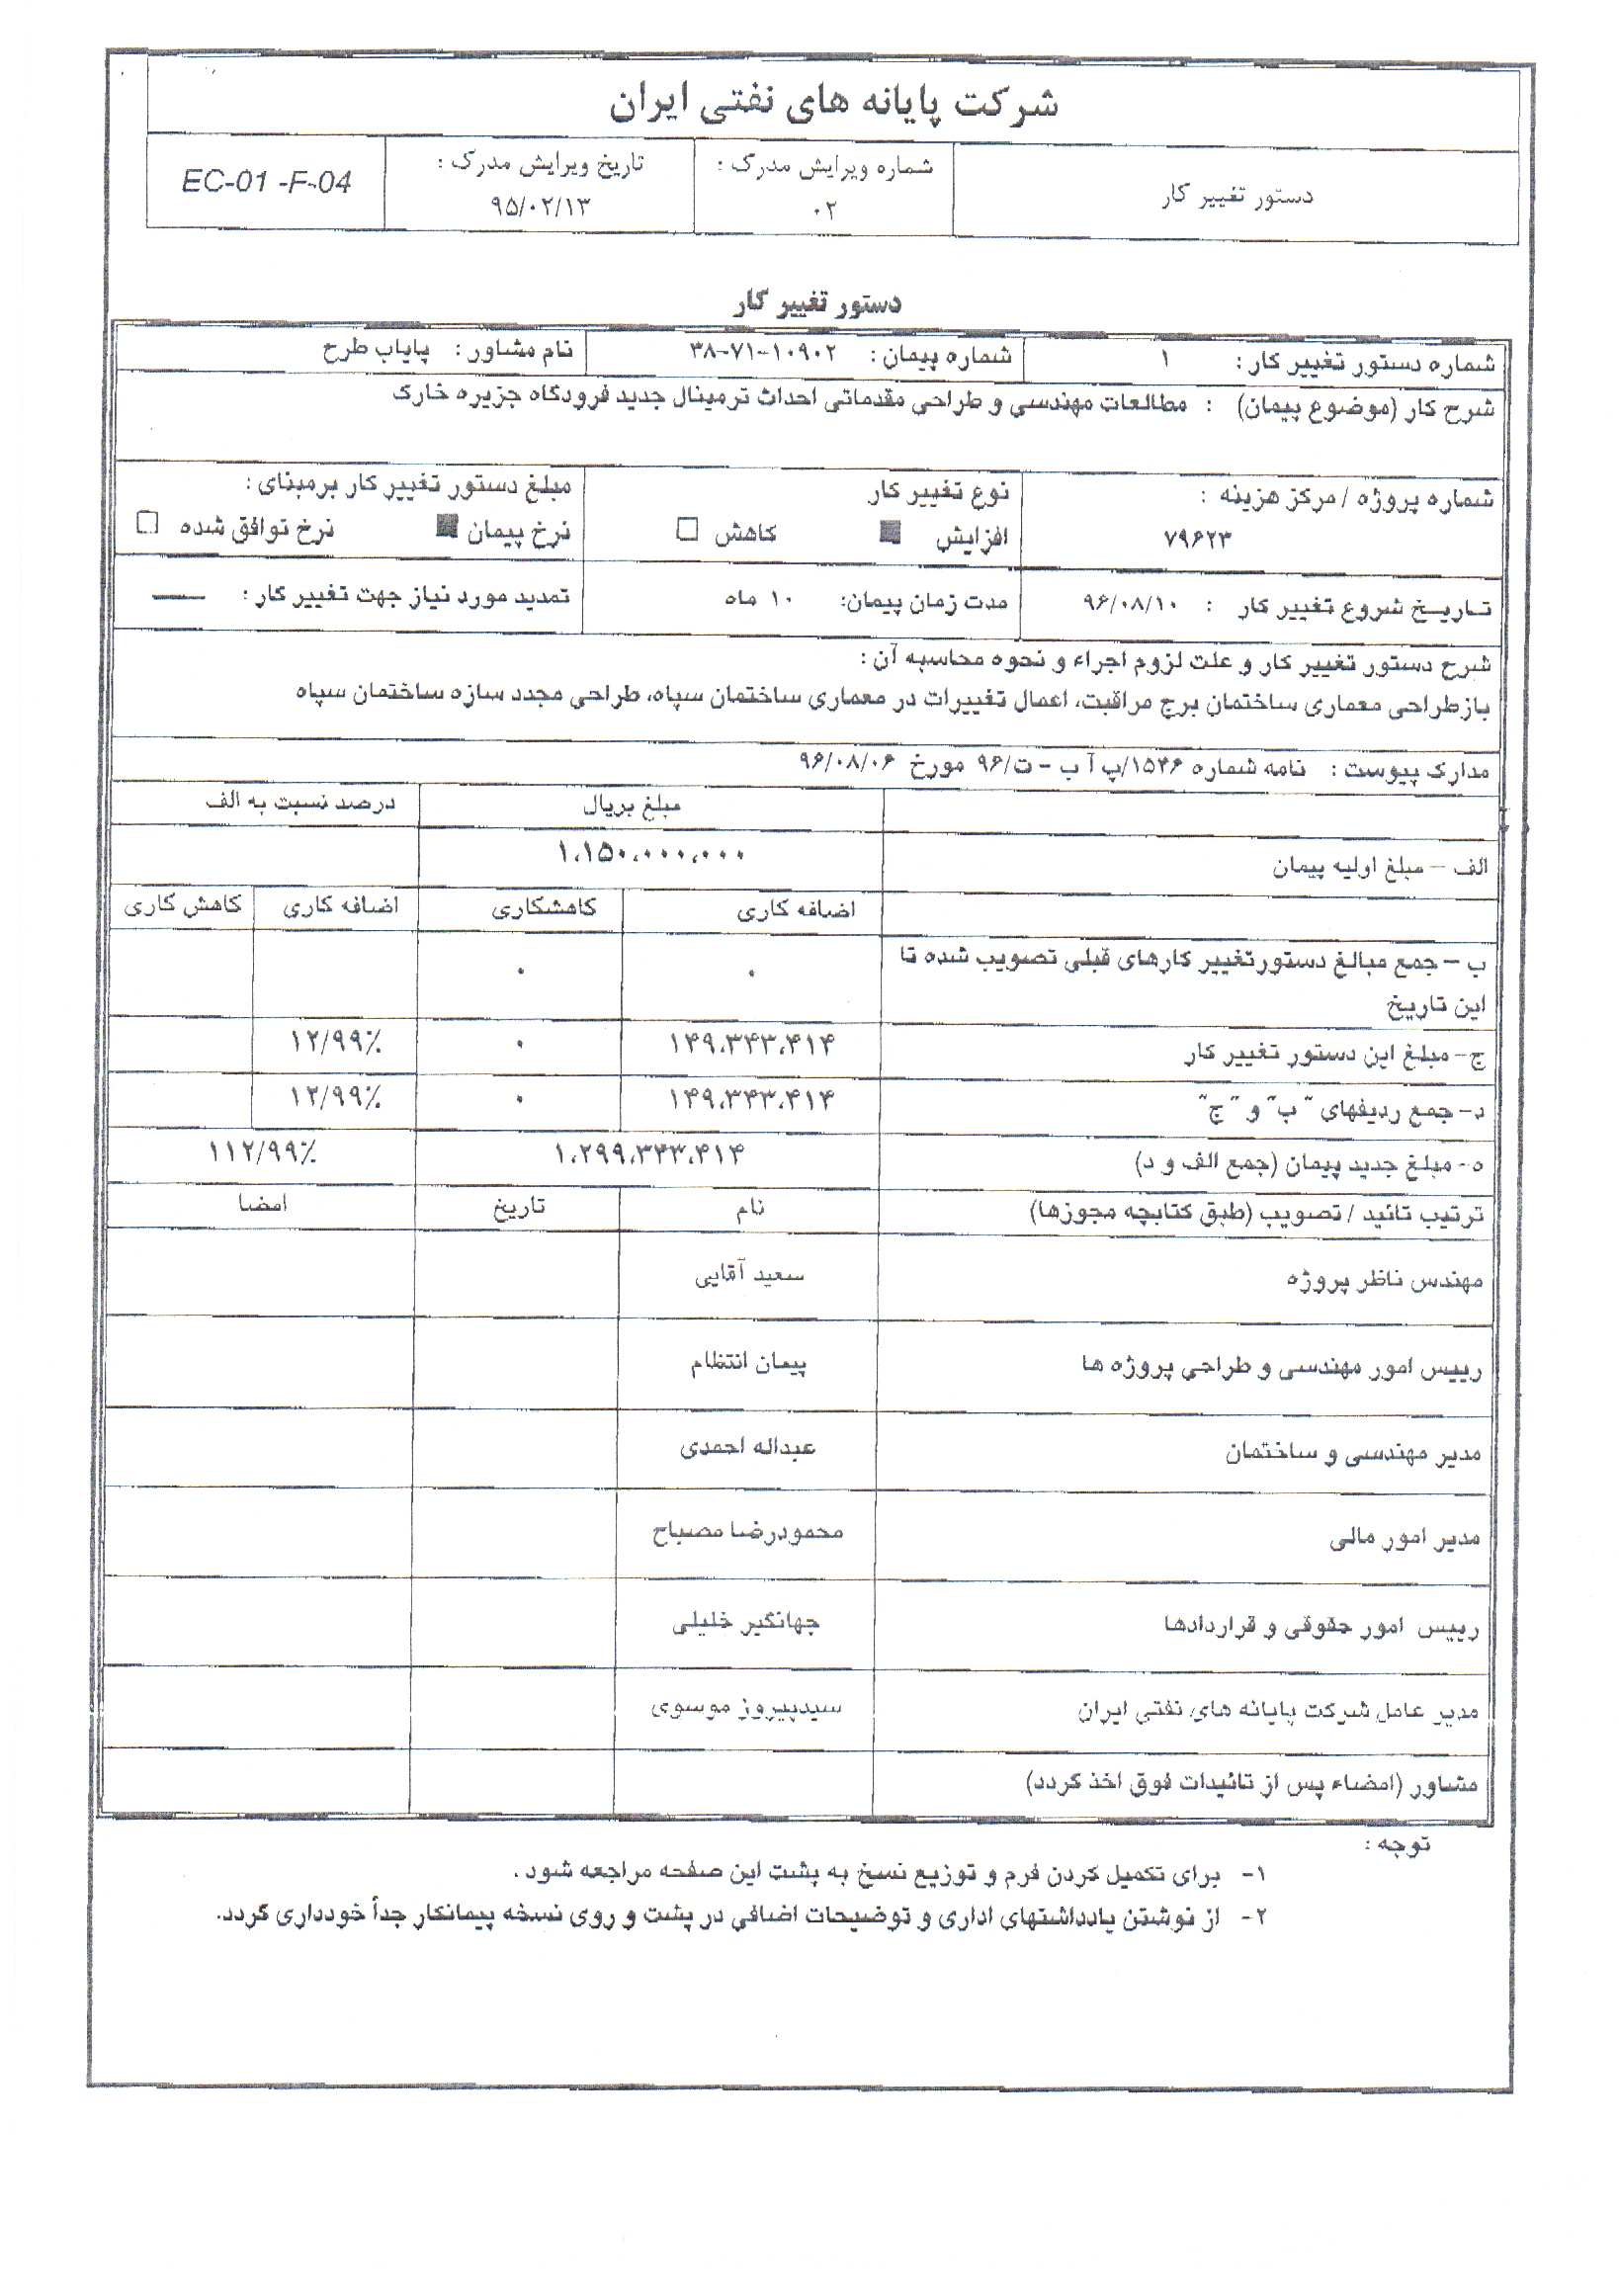 شرکت پایانه های نفتی ایران
دستور تغییر کار
شماره ویرایش مدرک :
۰۲
تاریخ ویرایش مدرک :
۹۵/۰۲/۱۳
EC-01 -F-04
دستور تغییر کار
شماره دستور تغییر کار : ۱ شماره پیمان : ۳۸-۷۱-۱۰۹۰۲ نام مشاور : پایاب طرح
شرح کار (موضوع پیمان) : مطالعات مهندسی و طراحی مقدماتی احداث ترمینال جدید فرودگاه جزیره خارک
شماره پروژه / مرکز هزینه :
۷۹۶۲۳
نوع تغییر کار
افزایش ■ کاهش □
مبلغ دستور تغییر کار برمبنای :
نرخ پیمان ■ نرخ توافق شده □
تاریخ شروع تغییر کار : ۹۶/۰۸/۱۰ مدت زمان پیمان: ۱۰ ماه تمدید مورد نیاز جهت تغییر کار : —
شرح دستور تغییر کار و علت لزوم اجراء و نحوه محاسبه آن :
بازطراحی معماری ساختمان برج مراقبت، اعمال تغییرات در معماری ساختمان سپاه، طراحی مجدد سازه ساختمان سپاه
مدارک پیوست : نامه شماره ۱۵۴۶/پ آ ب – ت/۹۶ مورخ ۹۶/۰۸/۰۶
مبلغ بریال درصد نسبت به الف
الف – مبلغ اولیه پیمان ۱،۱۵۰،۰۰۰،۰۰۰
اضافه کاری کاهشکاری اضافه کاری کاهش کاری
ب – جمع مبالغ دستورتغییر کارهای قبلی تصویب شده تا ۰ ۰
این تاریخ
ج- مبلغ این دستور تغییر کار ۱۴۹،۳۴۳،۴۱۴ ۰ ۱۲/۹۹٪
د- جمع ردیفهای " ب" و " ج" ۱۴۹،۳۴۳،۴۱۴ ۰ ۱۲/۹۹٪
ه- مبلغ جدید پیمان (جمع الف و د) ۱،۲۹۹،۳۴۳،۴۱۴ ۱۱۲/۹۹٪
ترتیب تائید / تصویب (طبق کتابچه مجوزها) نام تاریخ امضا
مهندس ناظر پروژه سعید آقایی
رییس امور مهندسی و طراحی پروژه ها پیمان انتظام
مدیر مهندسی و ساختمان عبداله احمدی
مدیر امور مالی محمودرضا مصباح
رییس امور حقوقی و قراردادها جهانگیر خلیلی
مدیر عامل شرکت پایانه های نفتی ایران سیدپیروز موسوی
مشاور (امضاء پس از تائیدات فوق اخذ گردد)
توجه :
۱- برای تکمیل کردن فرم و توزیع نسخ به پشت این صفحه مراجعه شود .
۲- از نوشتن یادداشتهای اداری و توضیحات اضافی در پشت و روی نسخه پیمانکار جداً خودداری گردد.